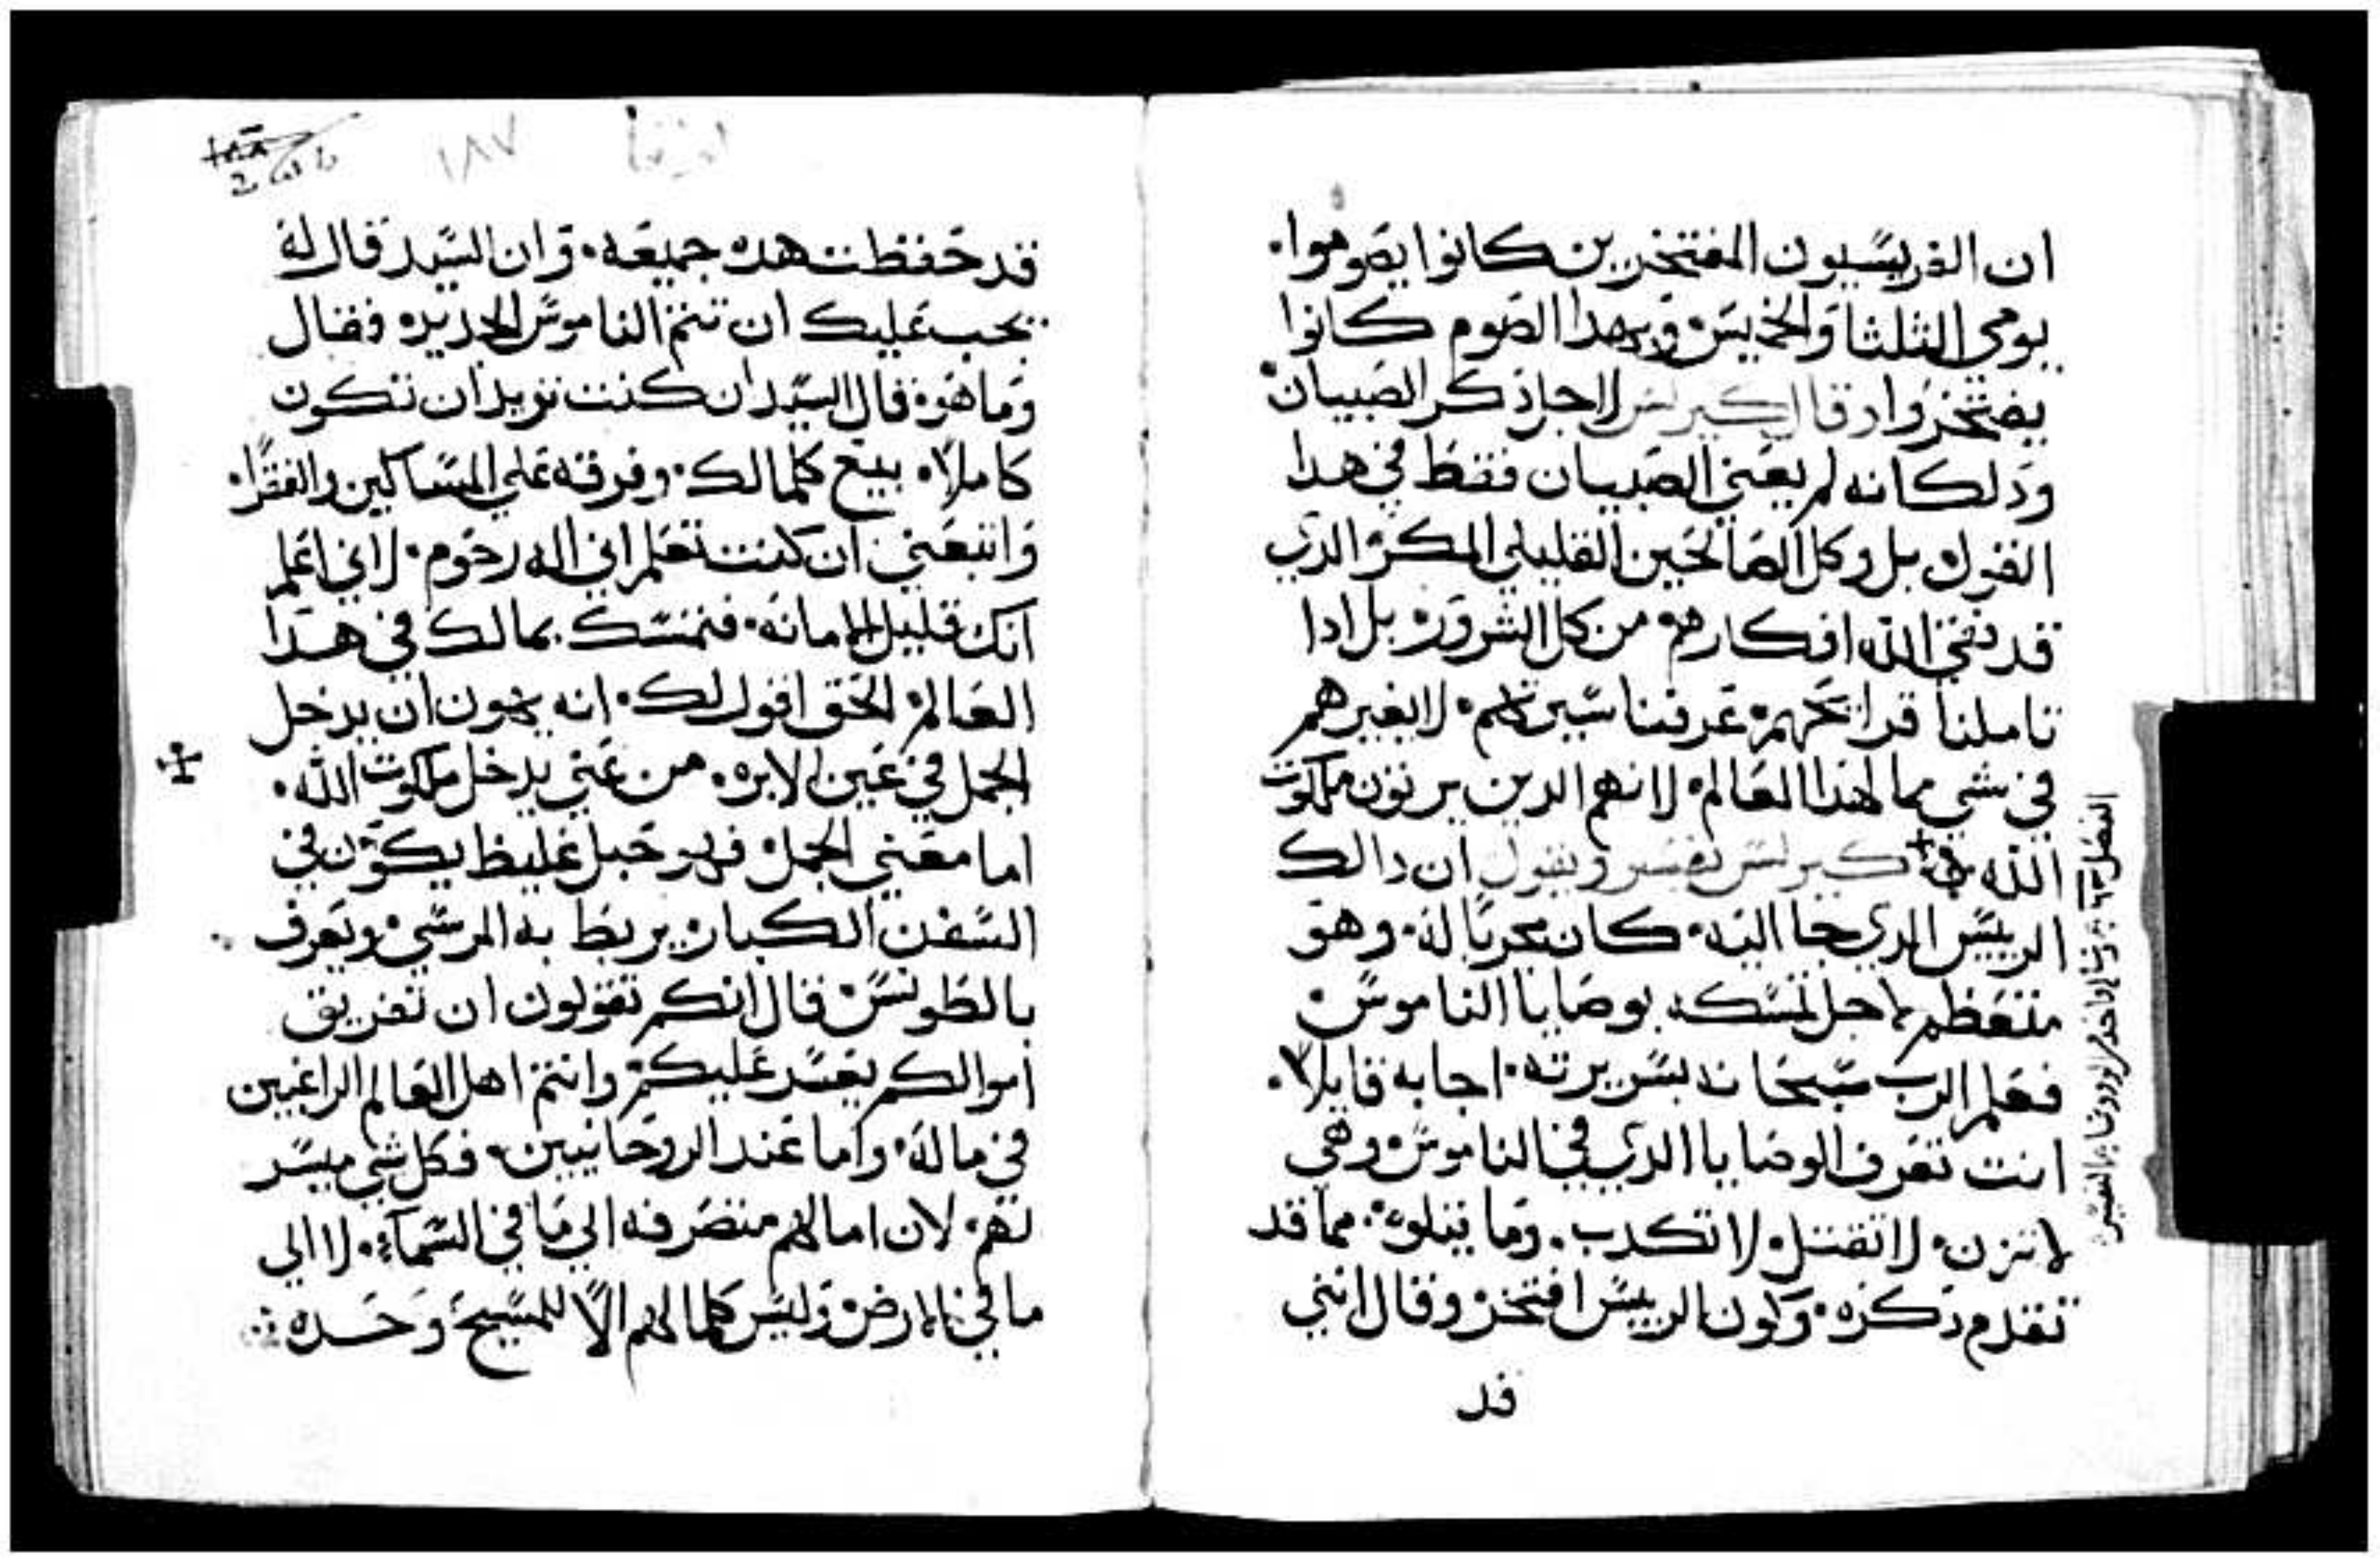 ان الفريسيون المفتخرين كانوا يصوموا.
يومي الثلثا والخميس وبهدا الصوم كانوا
يفتخروا وقال كيرلس لاجل ذكر الصبيان
ودلك انه لم يعني الصبيان فقط في هدا
القول بل وكل الصالحين القليلي المكر الدي
قد نقي الله افكارهم من كل الشرور بل ادا
تاملنا قرايحهم عرفنا سيرتهم لا بغيرهم
في شي مما لهدا العالم لانهم الدين يرتون ملكوت
الله كيرلس يفسر ويقول ان دالك
الرييس الدي جا اليه كان مجربا له وهو
متعظم لاجل تمسكه بوصايا الناموس
فعلم الرب سبحانه بسريرته اجابه قايلا.
انت تعرف الوصايا الدي في الناموس وهي
لا تزن لا تقتل لا تكدب. وما يتلوه مما قد
تقدم دكره ولون الرييس افتخر وقال انني
قد
١٨٧
قد حفظت هده جميعه وان السيد قال له
يجب عليك ان تتم الناموس الجديده فقال
وما هوه قال السيد ان كنت تريد ان تكون
كاملا بيع كلما لك وفرقه علي المساكين والفقرا
واتبعني ان كنت تعلم اني اله رحوم لاني اعلم
انك قليل الامانه فتمسك بما لك في هدا
العالم الحق اقول لك انه يهون ان يدخل
الجمل في عين الابره من غني يدخل ملكوت الله.
اما معني الجمل فهو حبل غليظ يكون في
السفن الكبار يربط به المرسي ويعرف
بالطونس قال انكم تقولون ان تفريق
اموالكم يعسر عليكم وانتم اهل العالم الراغبين
في ماله واما عند الروحانيين فكل شي ميسر
لهم لان امالهم منصرفه الي ما في السماء لا الي
ما في الارض وليس كلما لهم الا للمسيح وحده